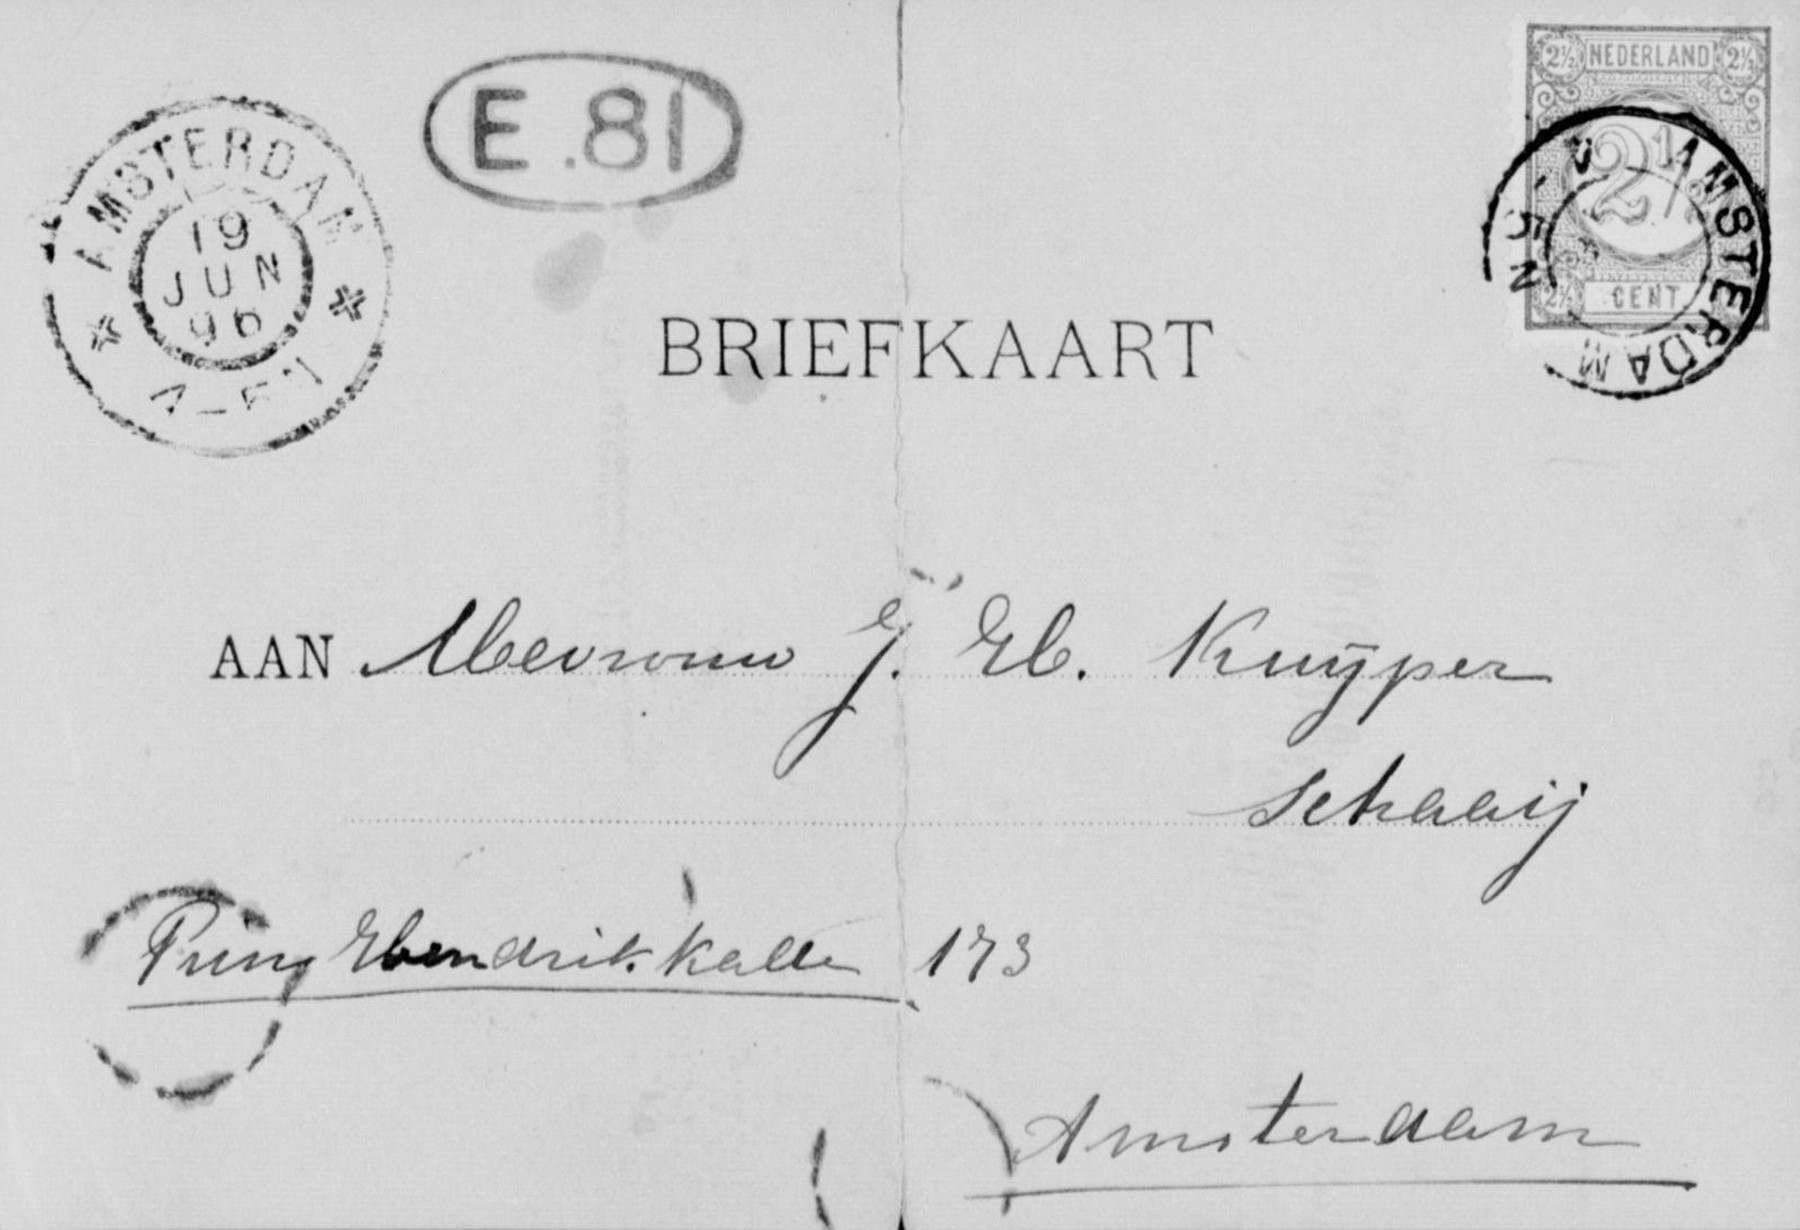 AMSTERDAM
19
JUN
96
4-5N
E.81
2½ NEDERLAND 2½
2½
2½ CENT
AMSTERDAM
-5N
BRIEFKAART
AAN Mevrouw J. H. Kuyper
Schaaij
Prins Hendrikkade 173
Amsterdam